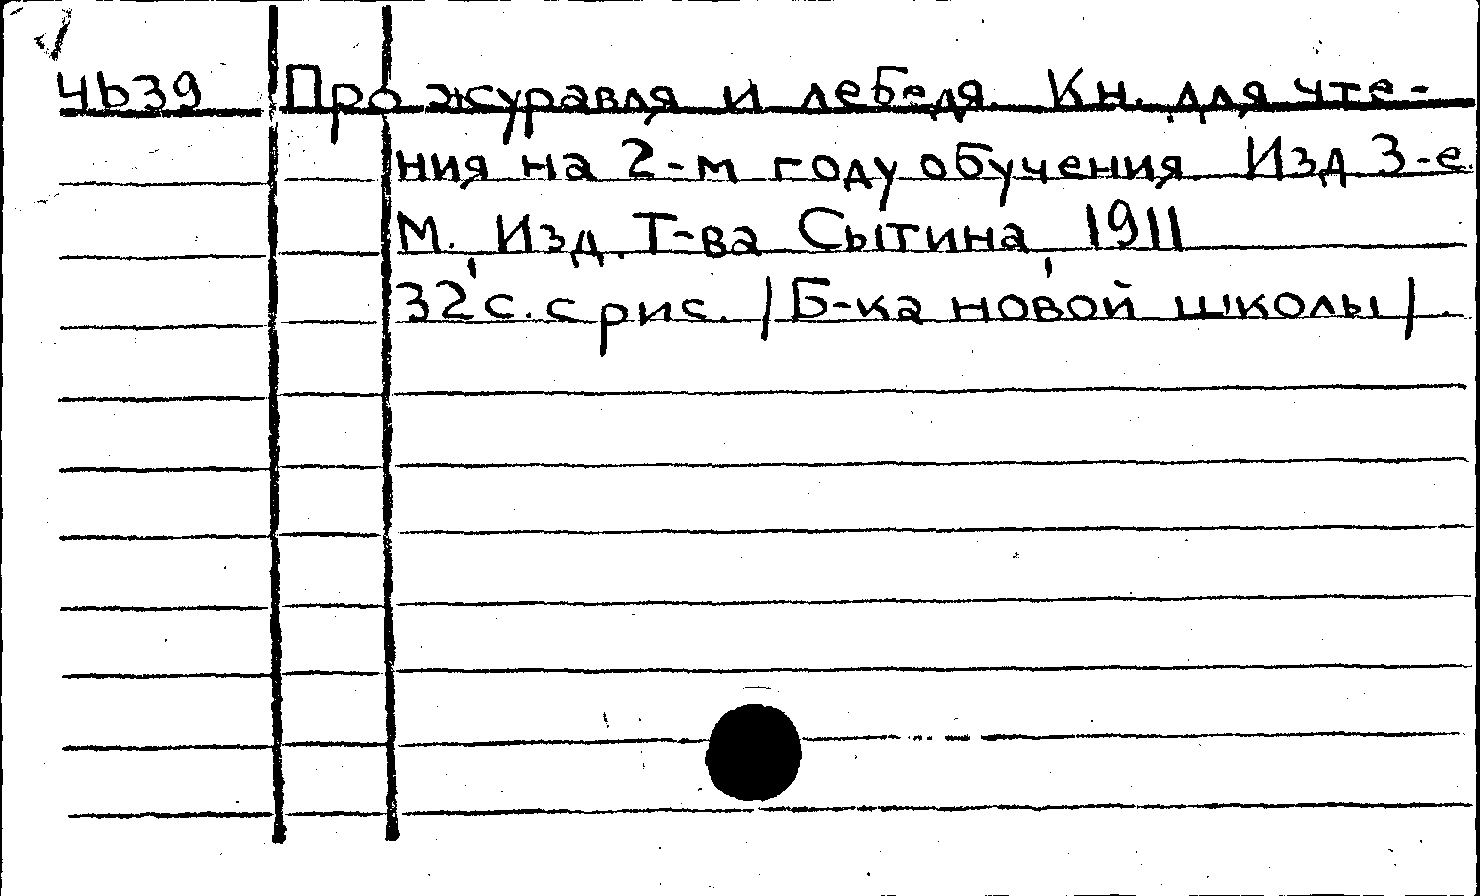 4b39 Про журавля и лебедя. Кн. для чте-
ния на 2-м году обучения. Изд. 3-е
М., Изд. Т-ва Сытина, 1911
32 с. с рис. /Б-ка новой школы/.